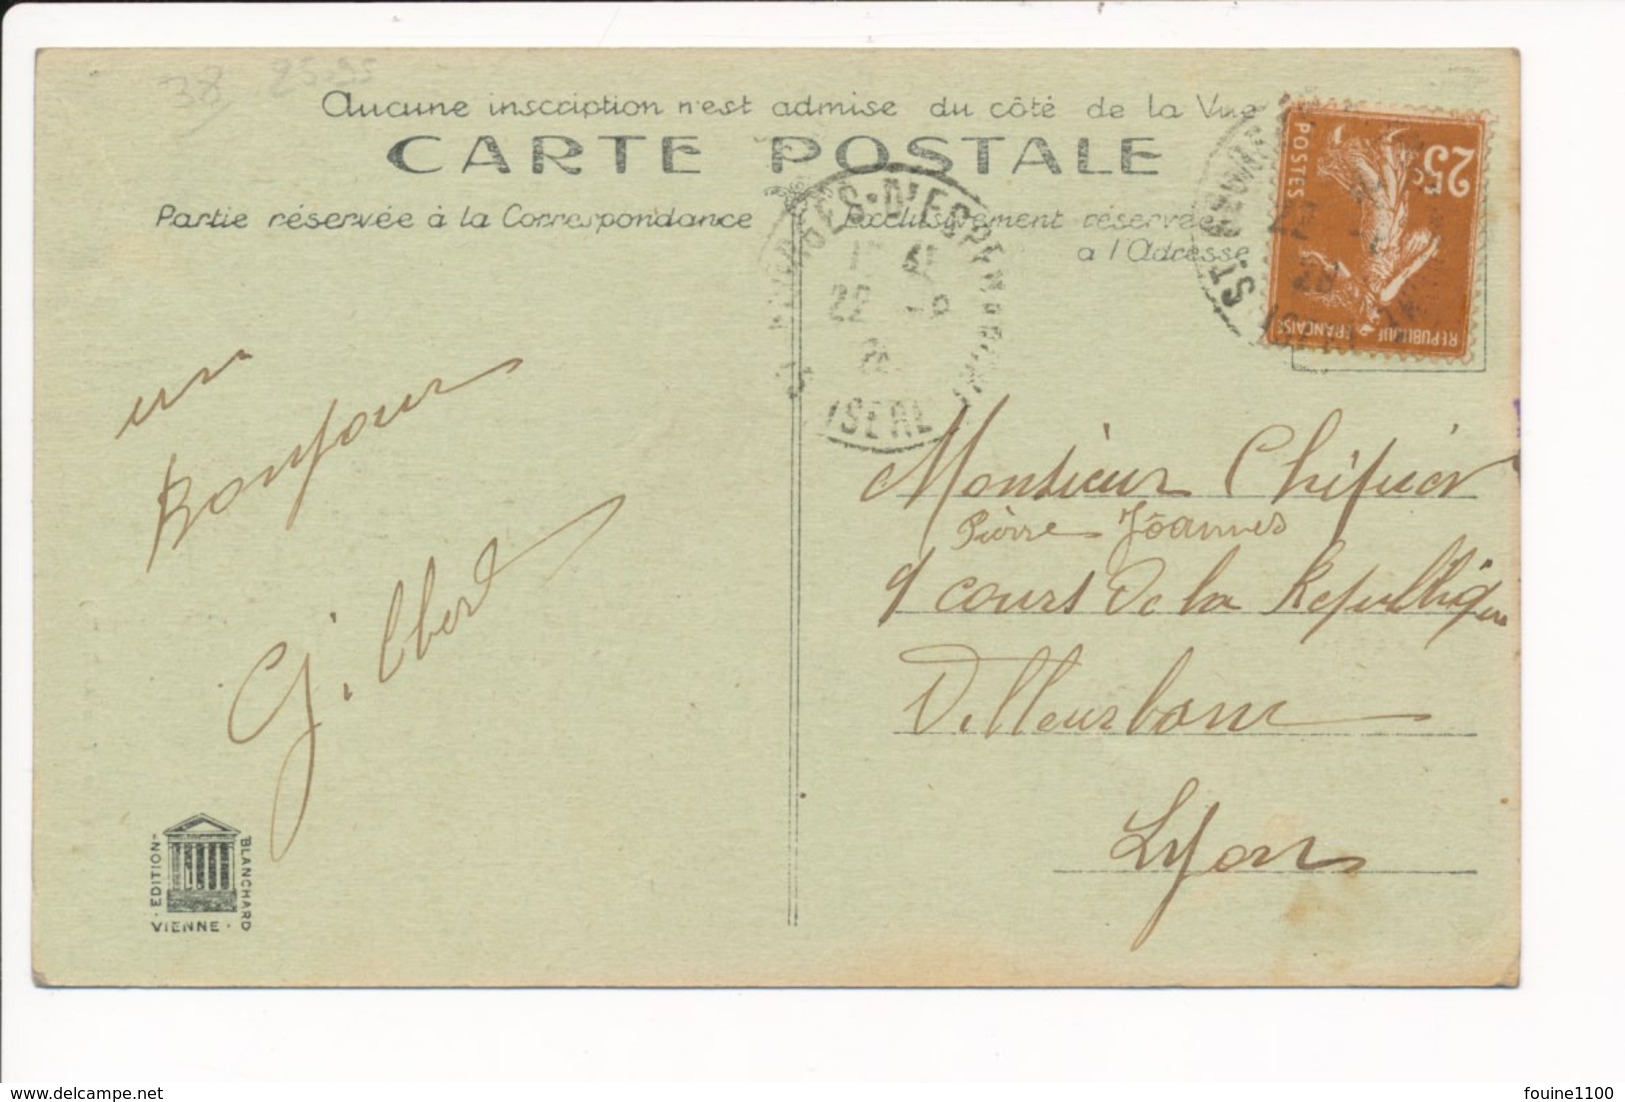 38 25.95
Aucune inscription n'est admise du côté de la Vue
CARTE POSTALE
Partie réservée à la Correspondance
Exclusivement réservée
à l'Adresse
25c
POSTES
REPUBLIQUE FRANÇAISE
ISERE
un
Bonjour
Gilbert
Monsieur Chipier
Pierre Jôannes
9 cours de la Republique
Villeurbanne
Lyon
EDITION
BLANCHARD
VIENNE
fouine1100